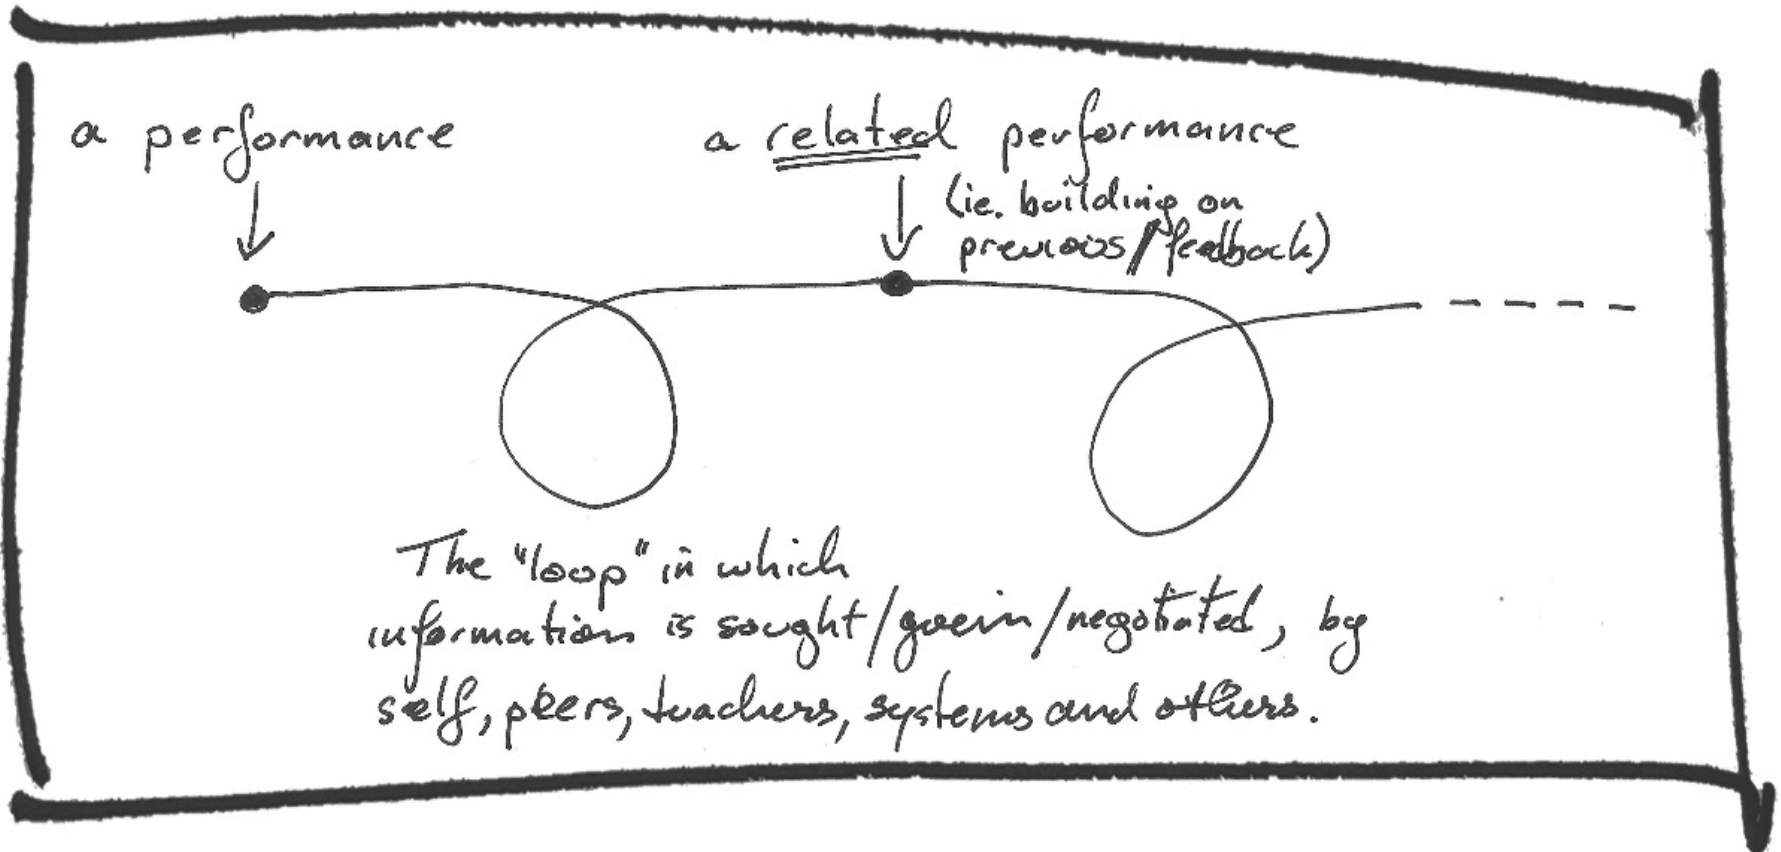 a performance
a related performance
(ie. building on
previous/feedback)
The "loop" in which
information is sought/given/negotiated, by
self, peers, teachers, systems and others.